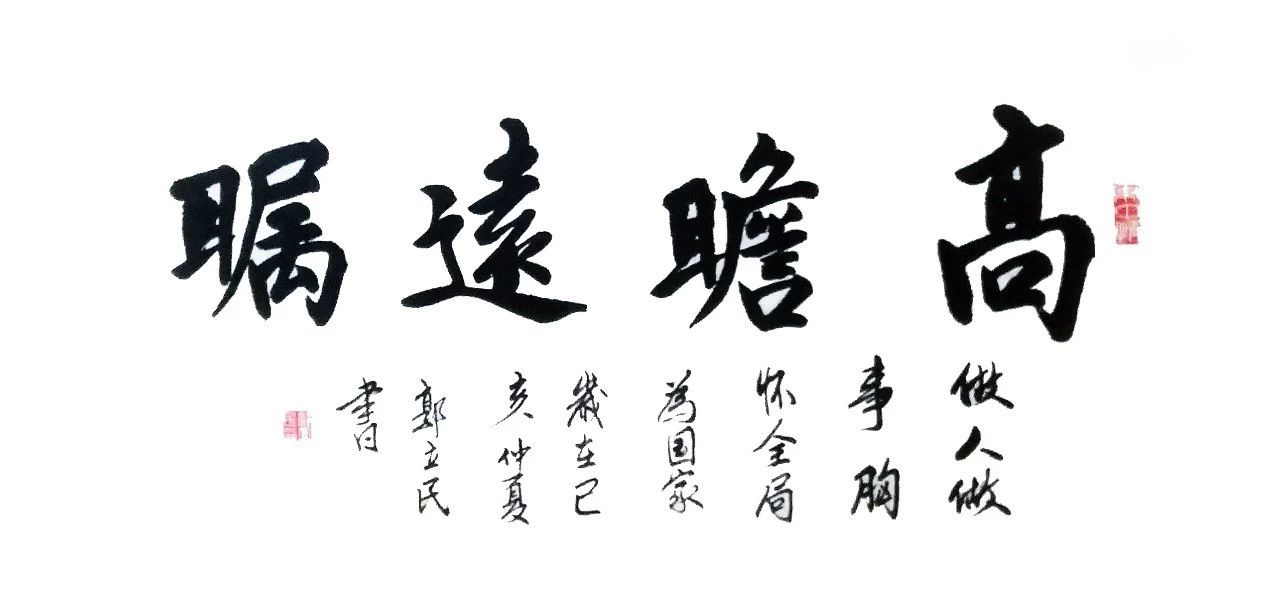 高瞻遠瞩
做人做
事胸
怀全局
為国家
歲在己
亥仲夏
郭立民
書